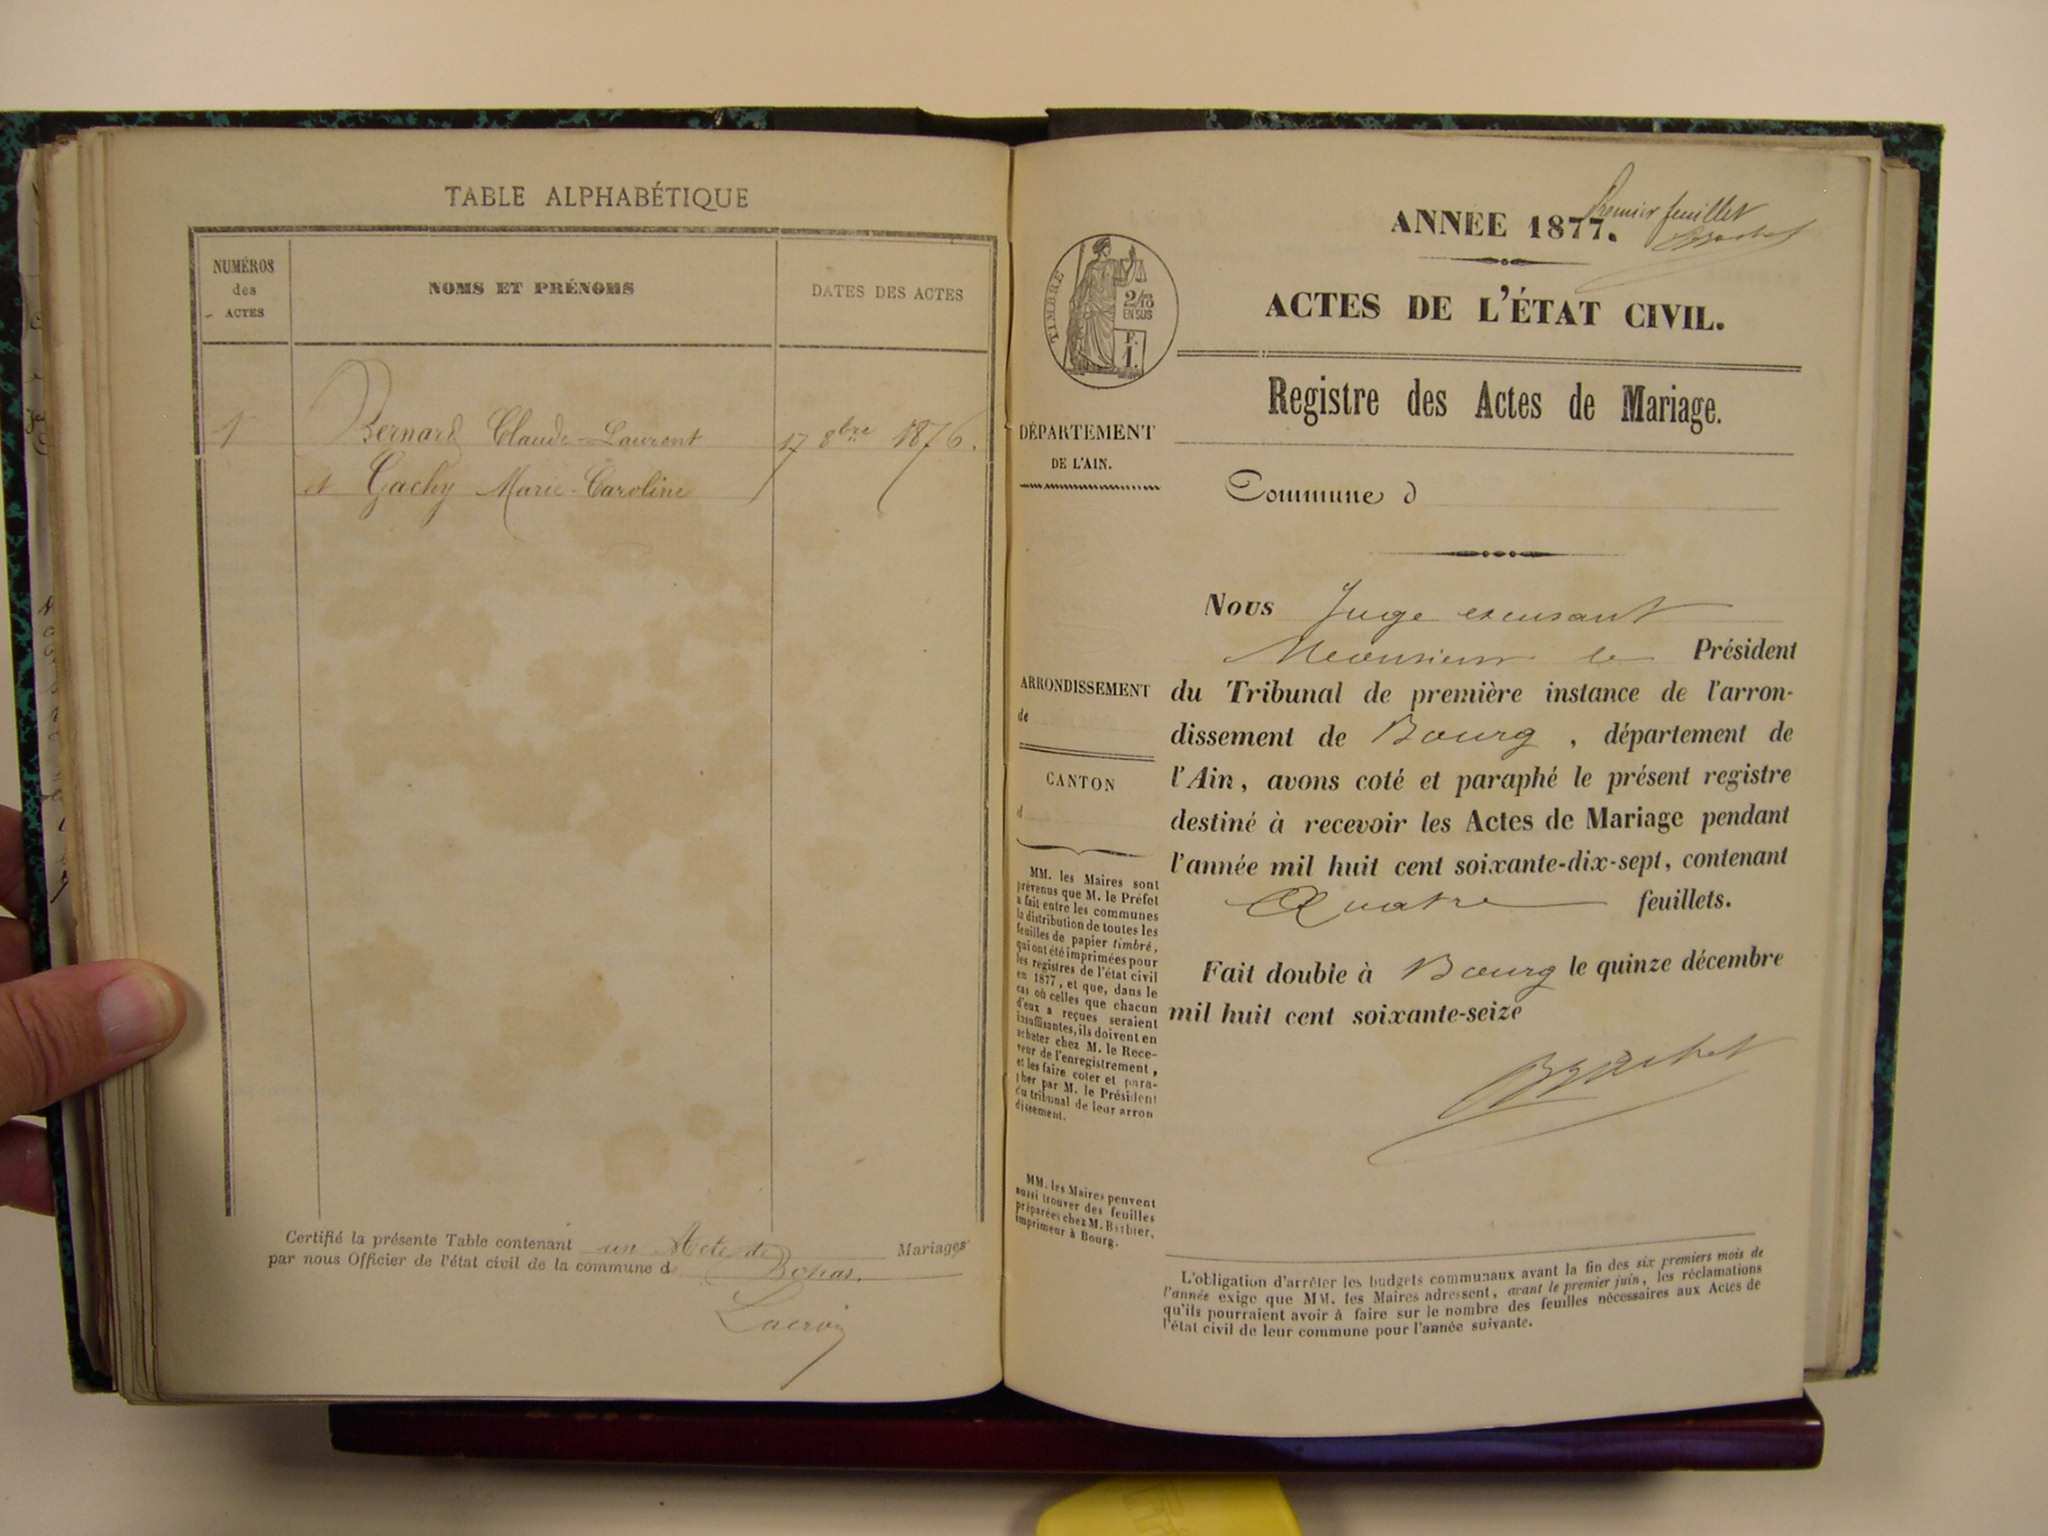 TABLE ALPHABÉTIQUE
NUMÉROS
des
ACTES
NOMS ET PRÉNOMS
DATES DES ACTES
1
Bernard Claude-Laurent
17 8bre 1876.
et Gachy Marie-Caroline
Certifié la présente Table contenant un Acte de Mariages
par nous Officier de l'état civil de la commune d Bohas.
Lacroix
Premier feuillet
ANNÉE 1877.
TIMBRE
2/10
EN SUS
F.
1.
ACTES DE L'ÉTAT CIVIL.
Registre des Actes de Mariage.
DÉPARTEMENT
DE L'AIN.
Commune d
ARRONDISSEMENT
de
CANTON
d
MM. les Maires sont
prévenus que M. le Préfet
a fait entre les communes
la distribution de toutes les
feuilles de papier timbré,
qui ont été imprimées pour
les registres de l'état civil
en 1877, et que, dans le
cas où celles que chacun
d'eux a reçues seraient
insuffisantes, ils doivent en
acheter chez M. le Rece-
veur de l'enregistrement,
et les faire coter et para-
pher par M. le Président
du tribunal de leur arron
dissement.
MM. les Maires peuvent
aussi trouver des feuilles
préparées chez M. Barbier,
imprimeur à Bourg.
Nous Juge excusant
Monsieur le Président
du Tribunal de première instance de l'arron-
dissement de Bourg, département de
l'Ain, avons coté et paraphé le présent registre
destiné à recevoir les Actes de Mariage pendant
l'année mil huit cent soixante-dix-sept, contenant
Quatre feuillets.
Fait double à Bourg le quinze décembre
mil huit cent soixante-seize
L'obligation d'arrêter les budgets communaux avant la fin des six premiers mois de
l'année exige que MM. les Maires adressent, avant le premier juin, les réclamations
qu'ils pourraient avoir à faire sur le nombre des feuilles nécessaires aux Actes de
l'état civil de leur commune pour l'année suivante.